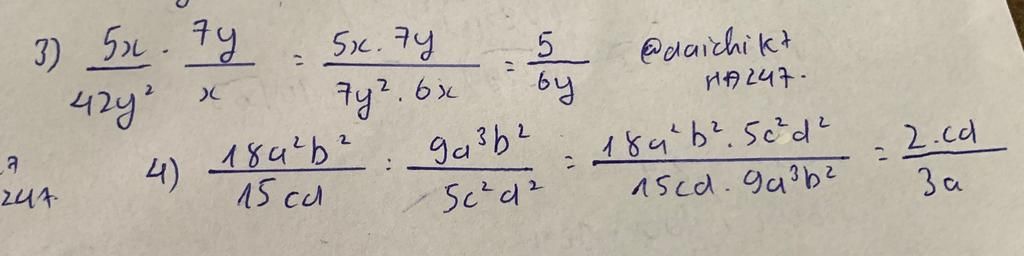 3) 5x/42y² · 7y/x = 5x · 7y/7y² · 6x = 5/6y @daichikt
HA247.
4) 18a²b²/15cd : 9a³b²/5c²d² = 18a²b² · 5c²d²/15cd · 9a³b² = 2.cd/3a
7
247.